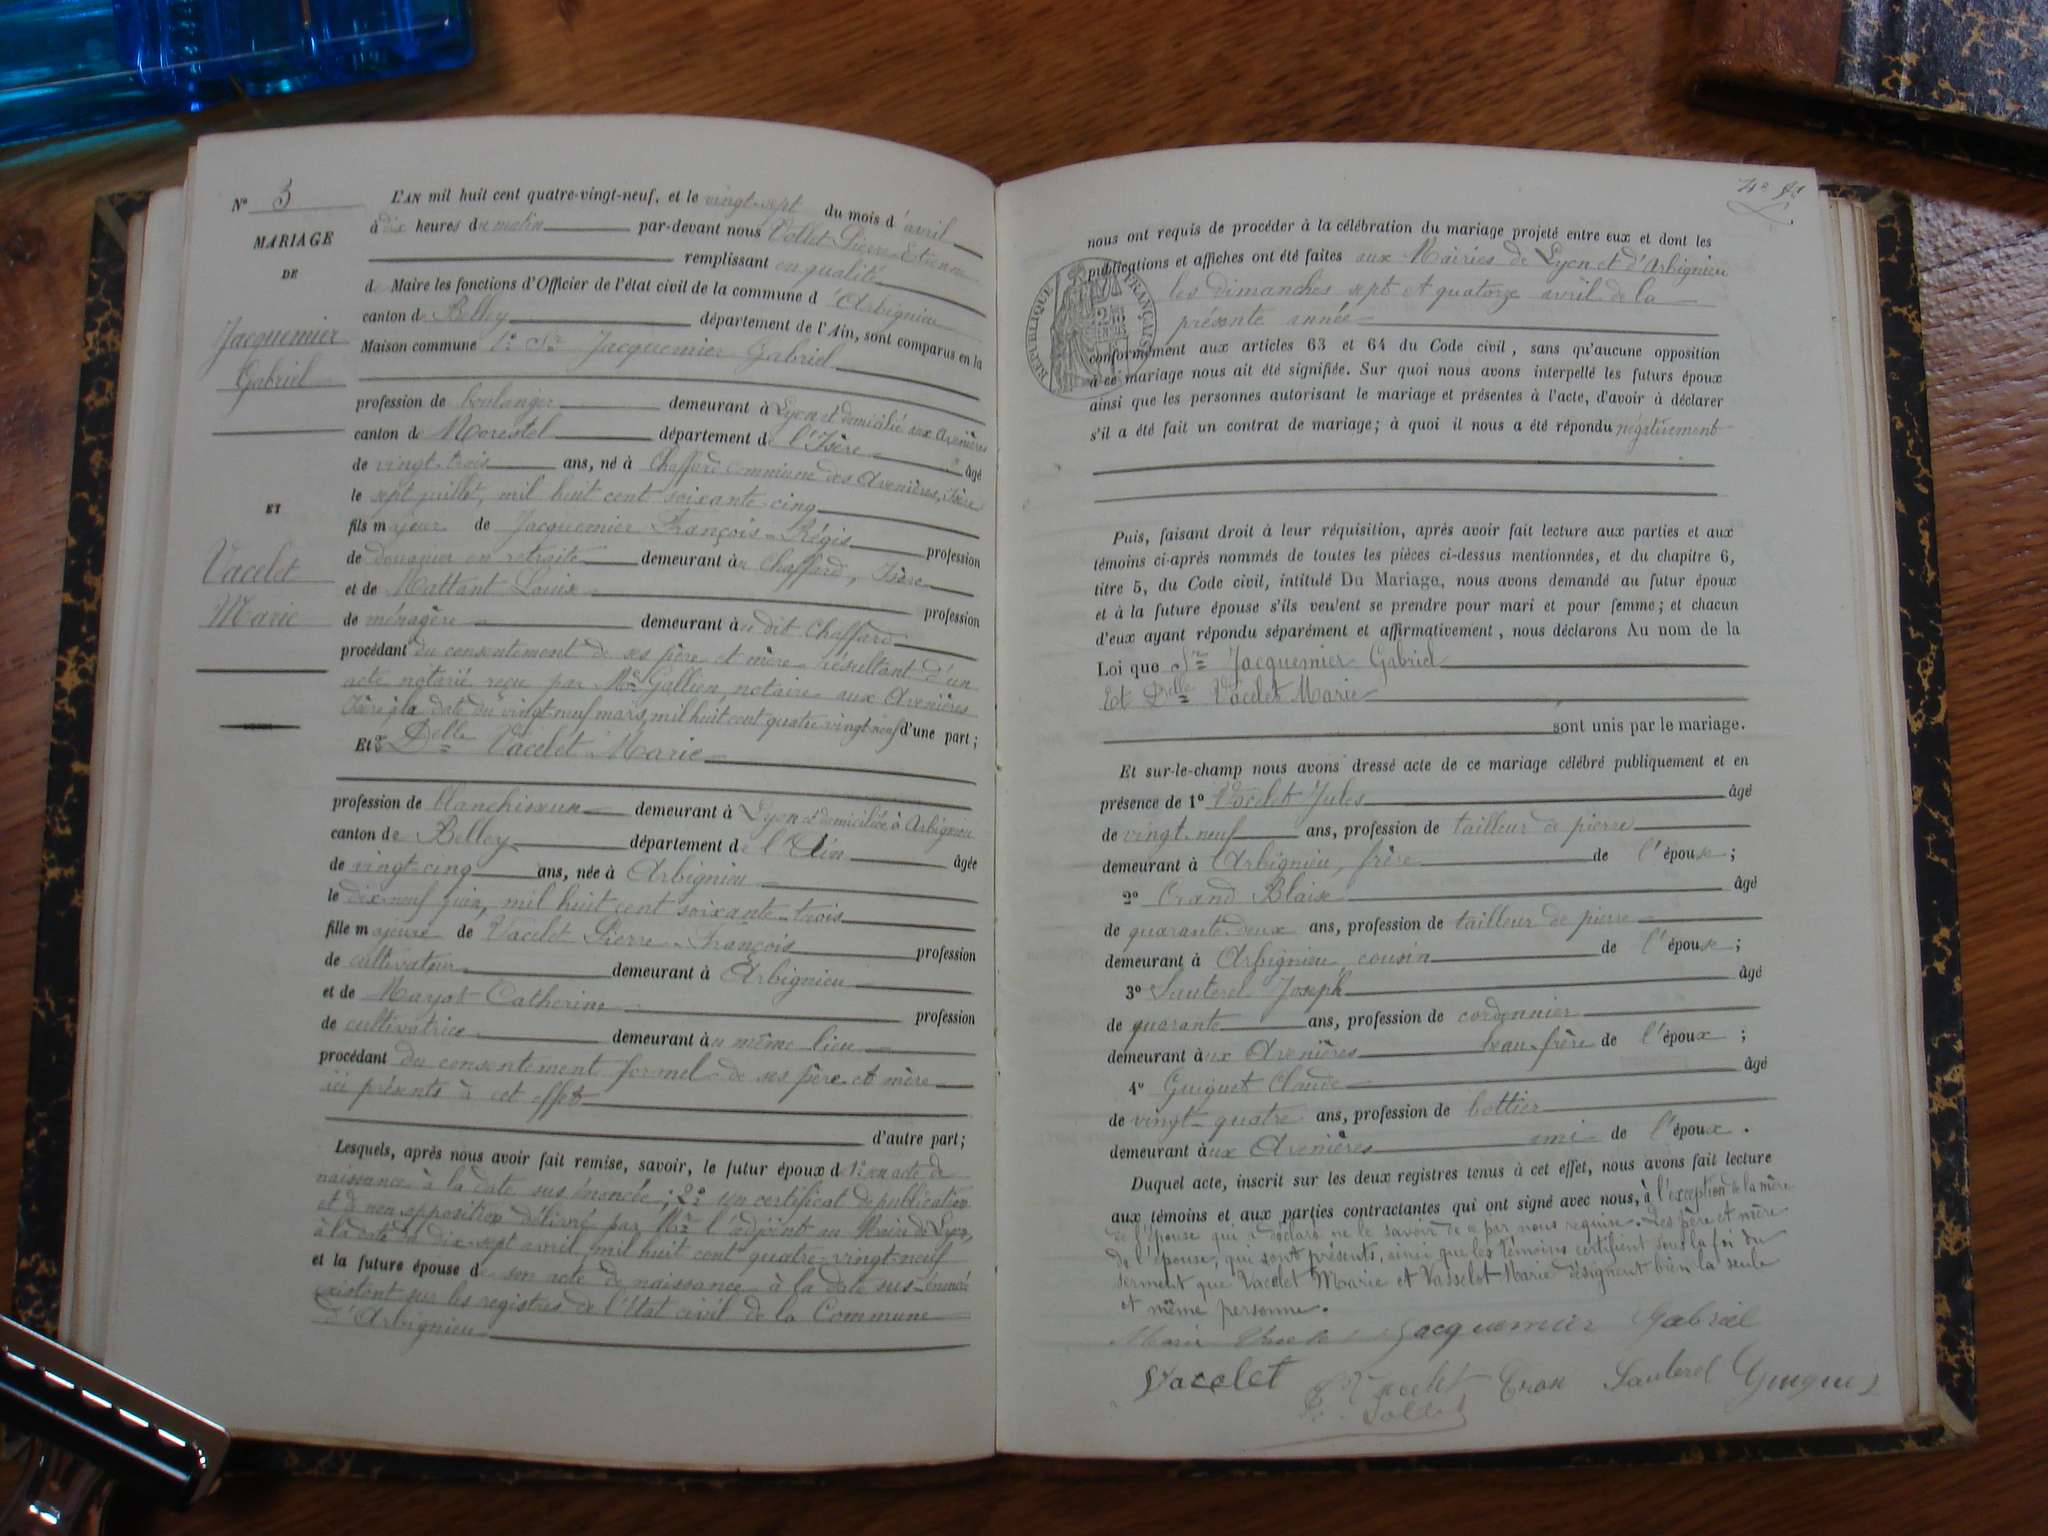 N° 3
MARIAGE
DE
Jacquemier
Gabriel
ET
Vacelet
Marie
L'AN mil huit cent quatre-vingt-neuf, et le vingt-sept du mois d'avril
à dix heures du matin par-devant nous Vollet Pierre Etienne
remplissant en qualité
de Maire les fonctions d'Officier de l'état civil de la commune d'Arbignieu
canton de Belley département de l'Ain, sont comparus en la
Maison commune 1° Sr Jacquemier Gabriel
profession de boulanger demeurant à Lyon et domicilié aux Avenières
canton de Morestel département de l'Isère âgé
de vingt-trois ans, né à Chaffard commune des Avenières, Isère
le sept juillet, mil huit cent soixante-cinq
fils majeur de Jacquemier François-Régis profession
de douanier en retraite demeurant au Chaffard, Isère
et de Mattant Louise profession
de ménagère demeurant au dit Chaffard
procédant du consentement de ses père et mère résultant d'un
acte notarié reçu par Me Gallien, notaire aux Avenières
Isère, à la date du vingt-neuf mars, mil huit cent quatre-vingt-neuf d'une part ;
Et 2° Delle Vacelet Marie
profession de blanchisseuse demeurant à Lyon et domiciliée à Arbignieu
canton de Belley département de l'Ain âgée
de vingt-cinq ans, née à Arbignieu
le dix-neuf juin, mil huit cent soixante-trois
fille majeure de Vacelet Pierre-François profession
de cultivateur demeurant à Arbignieu
et de Mayat Catherine profession
de cultivatrice demeurant au même lieu
procédant du consentement formel de ses père et mère
ici présents à cet effet
d'autre part ;
Lesquels, après nous avoir fait remise, savoir, le futur époux de 1° son acte de
naissance à la date sus énoncée ; 2° son certificat de publication
et de non opposition délivré par Mr l'adjoint au Maire de Lyon,
à la date du dix-sept avril, mil huit cent quatre-vingt-neuf
et la future épouse de son acte de naissance à la date sus-énoncée
existent sur les registres de l'état civil de la Commune
d'Arbignieu
nous ont requis de procéder à la célébration du mariage projeté entre eux et dont les
publications et affiches ont été faites aux Mairies de Lyon et d'Arbignieu
les dimanches sept et quatorze avril de la
présente année
RÉPUBLIQUE FRANÇAISE
conformément aux articles 63 et 64 du Code civil, sans qu'aucune opposition
à ce mariage nous ait été signifiée. Sur quoi nous avons interpellé les futurs époux
ainsi que les personnes autorisant le mariage et présentes à l'acte, d'avoir à déclarer
s'il a été fait un contrat de mariage ; à quoi il nous a été répondu négativement
Puis, faisant droit à leur réquisition, après avoir fait lecture aux parties et aux
témoins ci-après nommés de toutes les pièces ci-dessus mentionnées, et du chapitre 6,
titre 5, du Code civil, intitulé Du Mariage, nous avons demandé au futur époux
et à la future épouse s'ils veulent se prendre pour mari et pour femme ; et chacun
d'eux ayant répondu séparément et affirmativement, nous déclarons Au nom de la
Loi que Sr Jacquemier Gabriel
Et Delle Vacelet Marie
sont unis par le mariage.
Et sur-le-champ nous avons dressé acte de ce mariage célébré publiquement et en
présence de 1° Vacelet Jules âgé
de vingt-neuf ans, profession de tailleur de pierre
demeurant à Arbignieu, frère de l'épouse ;
2° Crand Blaise âgé
de quarante-deux ans, profession de tailleur de pierre
demeurant à Arbignieu, cousin de l'épouse ;
3° Sauterel Joseph âgé
de quarante ans, profession de cordonnier
demeurant aux Avenières beau-frère de l'époux ;
4° Guiguet Claude âgé
de vingt-quatre ans, profession de bottier
demeurant aux Avenières ami de l'époux.
Duquel acte, inscrit sur les deux registres tenus à cet effet, nous avons fait lecture
aux témoins et aux parties contractantes qui ont signé avec nous, à l'exception de la mère
de l'épouse qui a déclaré ne le savoir de ce par nous requise. Les père et mère
de l'épouse, qui sont présents, ainsi que les témoins certifient sous la foi du
serment que Vacelet Marie et Vasselet Marie désignent bien la seule
et même personne.
Marie Jacquemier Gabriel
Vacelet Vacelet Cran Sauterel Guiguet